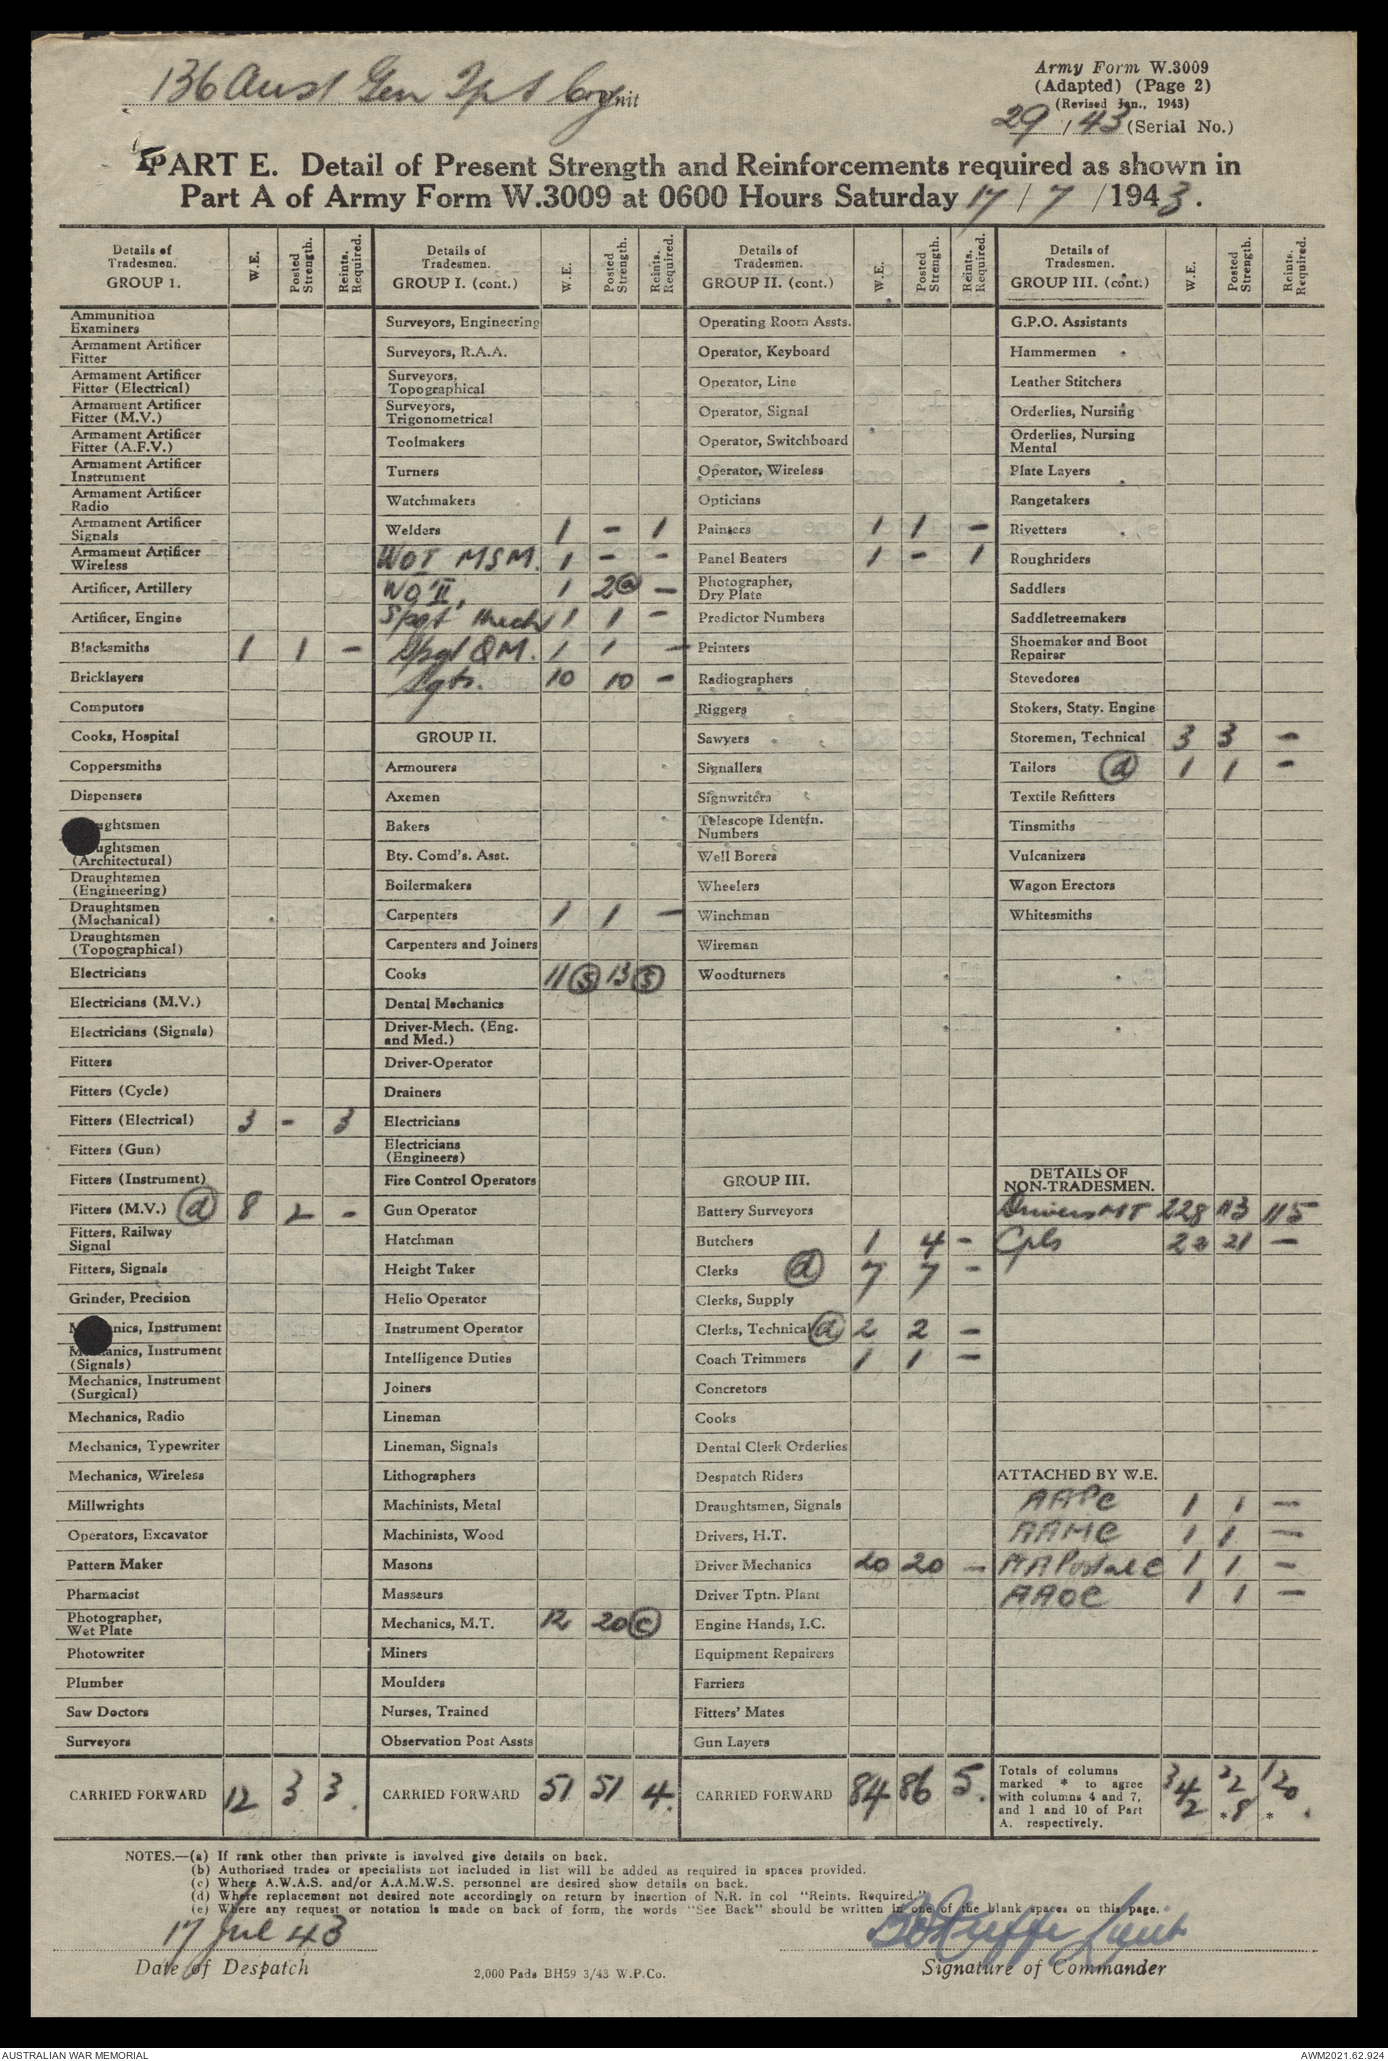 136 Aust Gen Tpt Coy Unit
Army Form W.3009
(Adapted) (Page 2)
(Revised Jan., 1943)
29 / 43 (Serial No.)
PART E. Detail of Present Strength and Reinforcements required as shown in
Part A of Army Form W.3009 at 0600 Hours Saturday 17 / 7 / 1943.
Details of Tradesmen. GROUP 1. W.E. Posted Strength. Reints. Required.
Ammunition Examiners
Armament Artificer Fitter
Armament Artificer Fitter (Electrical)
Armament Artificer Fitter (M.V.)
Armament Artificer Fitter (A.F.V.)
Armament Artificer Instrument
Armament Artificer Radio
Armament Artificer Signals
Armament Artificer Wireless
Artificer, Artillery
Artificer, Engine
Blacksmiths 1 1 -
Bricklayers
Computors
Cooks, Hospital
Coppersmiths
Dispensers
ughtsmen
ughtsmen (Architectural)
Draughtsmen (Engineering)
Draughtsmen (Mechanical)
Draughtsmen (Topographical)
Electricians
Electricians (M.V.)
Electricians (Signals)
Fitters
Fitters (Cycle)
Fitters (Electrical) 3 - 3
Fitters (Gun)
Fitters (Instrument)
Fitters (M.V.) (d) 8 2 -
Fitters, Railway Signal
Fitters, Signals
Grinder, Precision
M nics, Instrument
Mechanics, Instrument (Signals)
Mechanics, Instrument (Surgical)
Mechanics, Radio
Mechanics, Typewriter
Mechanics, Wireless
Millwrights
Operators, Excavator
Pattern Maker
Pharmacist
Photographer, Wet Plate
Photowriter
Plumber
Saw Doctors
Surveyors
CARRIED FORWARD 12 3 3.
Details of Tradesmen. GROUP I. (cont.) W.E. Posted Strength. Reints. Required.
Surveyors, Engineering
Surveyors, R.A.A.
Surveyors, Topographical
Surveyors, Trigonometrical
Toolmakers
Turners
Watchmakers
Welders 1 - 1
WOI MSM. 1 - -
WO II, 1 2(a) -
Sgt Mech 1 1 -
Sgt QM. 1 1 -
Sgts. 10 10 -
GROUP II.
Armourers
Axemen
Bakers
Bty. Comd's. Asst.
Boilermakers
Carpenters 1 1 -
Carpenters and Joiners
Cooks 11 (5) 13 (5)
Dental Mechanics
Driver-Mech. (Eng. and Med.)
Driver-Operator
Drainers
Electricians
Electricians (Engineers)
Fire Control Operators
Gun Operator
Hatchman
Height Taker
Helio Operator
Instrument Operator
Intelligence Duties
Joiners
Lineman
Lineman, Signals
Lithographers
Machinists, Metal
Machinists, Wood
Masons
Masseurs
Mechanics, M.T. 12 20 (c)
Miners
Moulders
Nurses, Trained
Observation Post Assts
CARRIED FORWARD 51 51 4.
Details of Tradesmen. GROUP II. (cont.) W.E. Posted Strength. Reints. Required.
Operating Room Assts.
Operator, Keyboard
Operator, Line
Operator, Signal
Operator, Switchboard
Operator, Wireless
Opticians
Painters 1 1 -
Panel Beaters 1 - 1
Photographer, Dry Plate
Predictor Numbers
Printers
Radiographers
Riggers
Sawyers
Signallers
Signwriters
Telescope Identfn. Numbers
Well Borers
Wheelers
Winchman
Wireman
Woodturners
GROUP III.
Battery Surveyors
Butchers 1 4 -
Clerks (d) 7 7 -
Clerks, Supply
Clerks, Technical (d) 2 2 -
Coach Trimmers 1 1 -
Concretors
Cooks
Dental Clerk Orderlies
Despatch Riders
Draughtsmen, Signals
Drivers, H.T.
Driver Mechanics 20 20 -
Driver Tptn. Plant
Engine Hands, I.C.
Equipment Repairers
Farriers
Fitters' Mates
Gun Layers
CARRIED FORWARD 84 86 5.
Details of Tradesmen. GROUP III. (cont.) W.E. Posted Strength. Reints. Required.
G.P.O. Assistants
Hammermen
Leather Stitchers
Orderlies, Nursing
Orderlies, Nursing Mental
Plate Layers
Rangetakers
Rivetters
Roughriders
Saddlers
Saddletreemakers
Shoemaker and Boot Repairer
Stevedores
Stokers, Staty. Engine
Storemen, Technical 3 3 -
Tailors (d) 1 1 -
Textile Refitters
Tinsmiths
Vulcanizers
Wagon Erectors
Whitesmiths
DETAILS OF NON-TRADESMEN.
Drivers MT 228 113 115
Cpls 22 21 -
ATTACHED BY W.E.
AAPC 1 1 -
AAMC 1 1 -
AAPostal C 1 1 -
AAOC 1 1 -
Totals of columns marked * to agree with columns 4 and 7, and 1 and 10 of Part A. respectively. 342 *228 *120.
NOTES.—(a) If rank other than private is involved give details on back.
(b) Authorised trades or specialists not included in list will be added as required in spaces provided.
(c) Where A.W.A.S. and/or A.A.M.W.S. personnel are desired show details on back.
(d) Where replacement not desired note accordingly on return by insertion of N.R. in col "Reints. Required."
(e) Where any request or notation is made on back of form, the words "See Back" should be written in one of the blank spaces on this page.
17 Jul 43
Date of Despatch
2,000 Pads BH59 3/43 W.P.Co.
Lieut
Signature of Commander
AUSTRALIAN WAR MEMORIAL
AWM2021.62.924